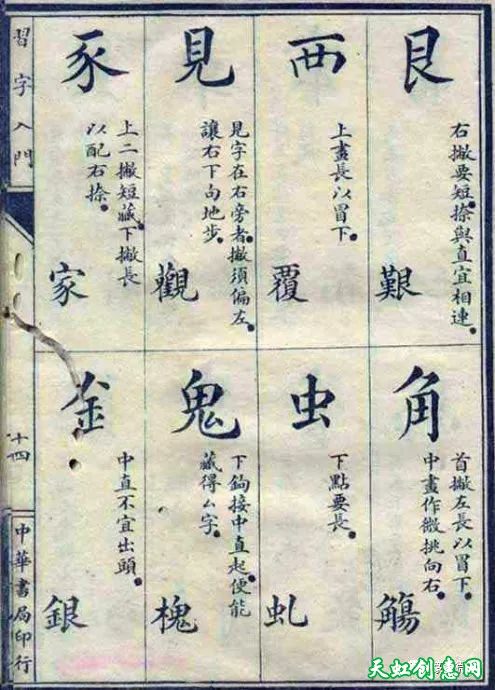 艮
右撇要短。捺與直宜相連。
艱
西
上畫長以冒下。
覆
見
見字在右旁者。撇須偏左。
讓右下勾地步。
觀
豕
上二撇短藏。下撇長
以配右捺。
家
角
首撇左長以冒下。
中畫作微挑向右。
觴
虫
下點要長。
虬
鬼
下鉤接中直起。便能
藏得厶字。
槐
金
中直不宜出頭。
銀
習字入門
十四
中華書局印行
天虹创意网